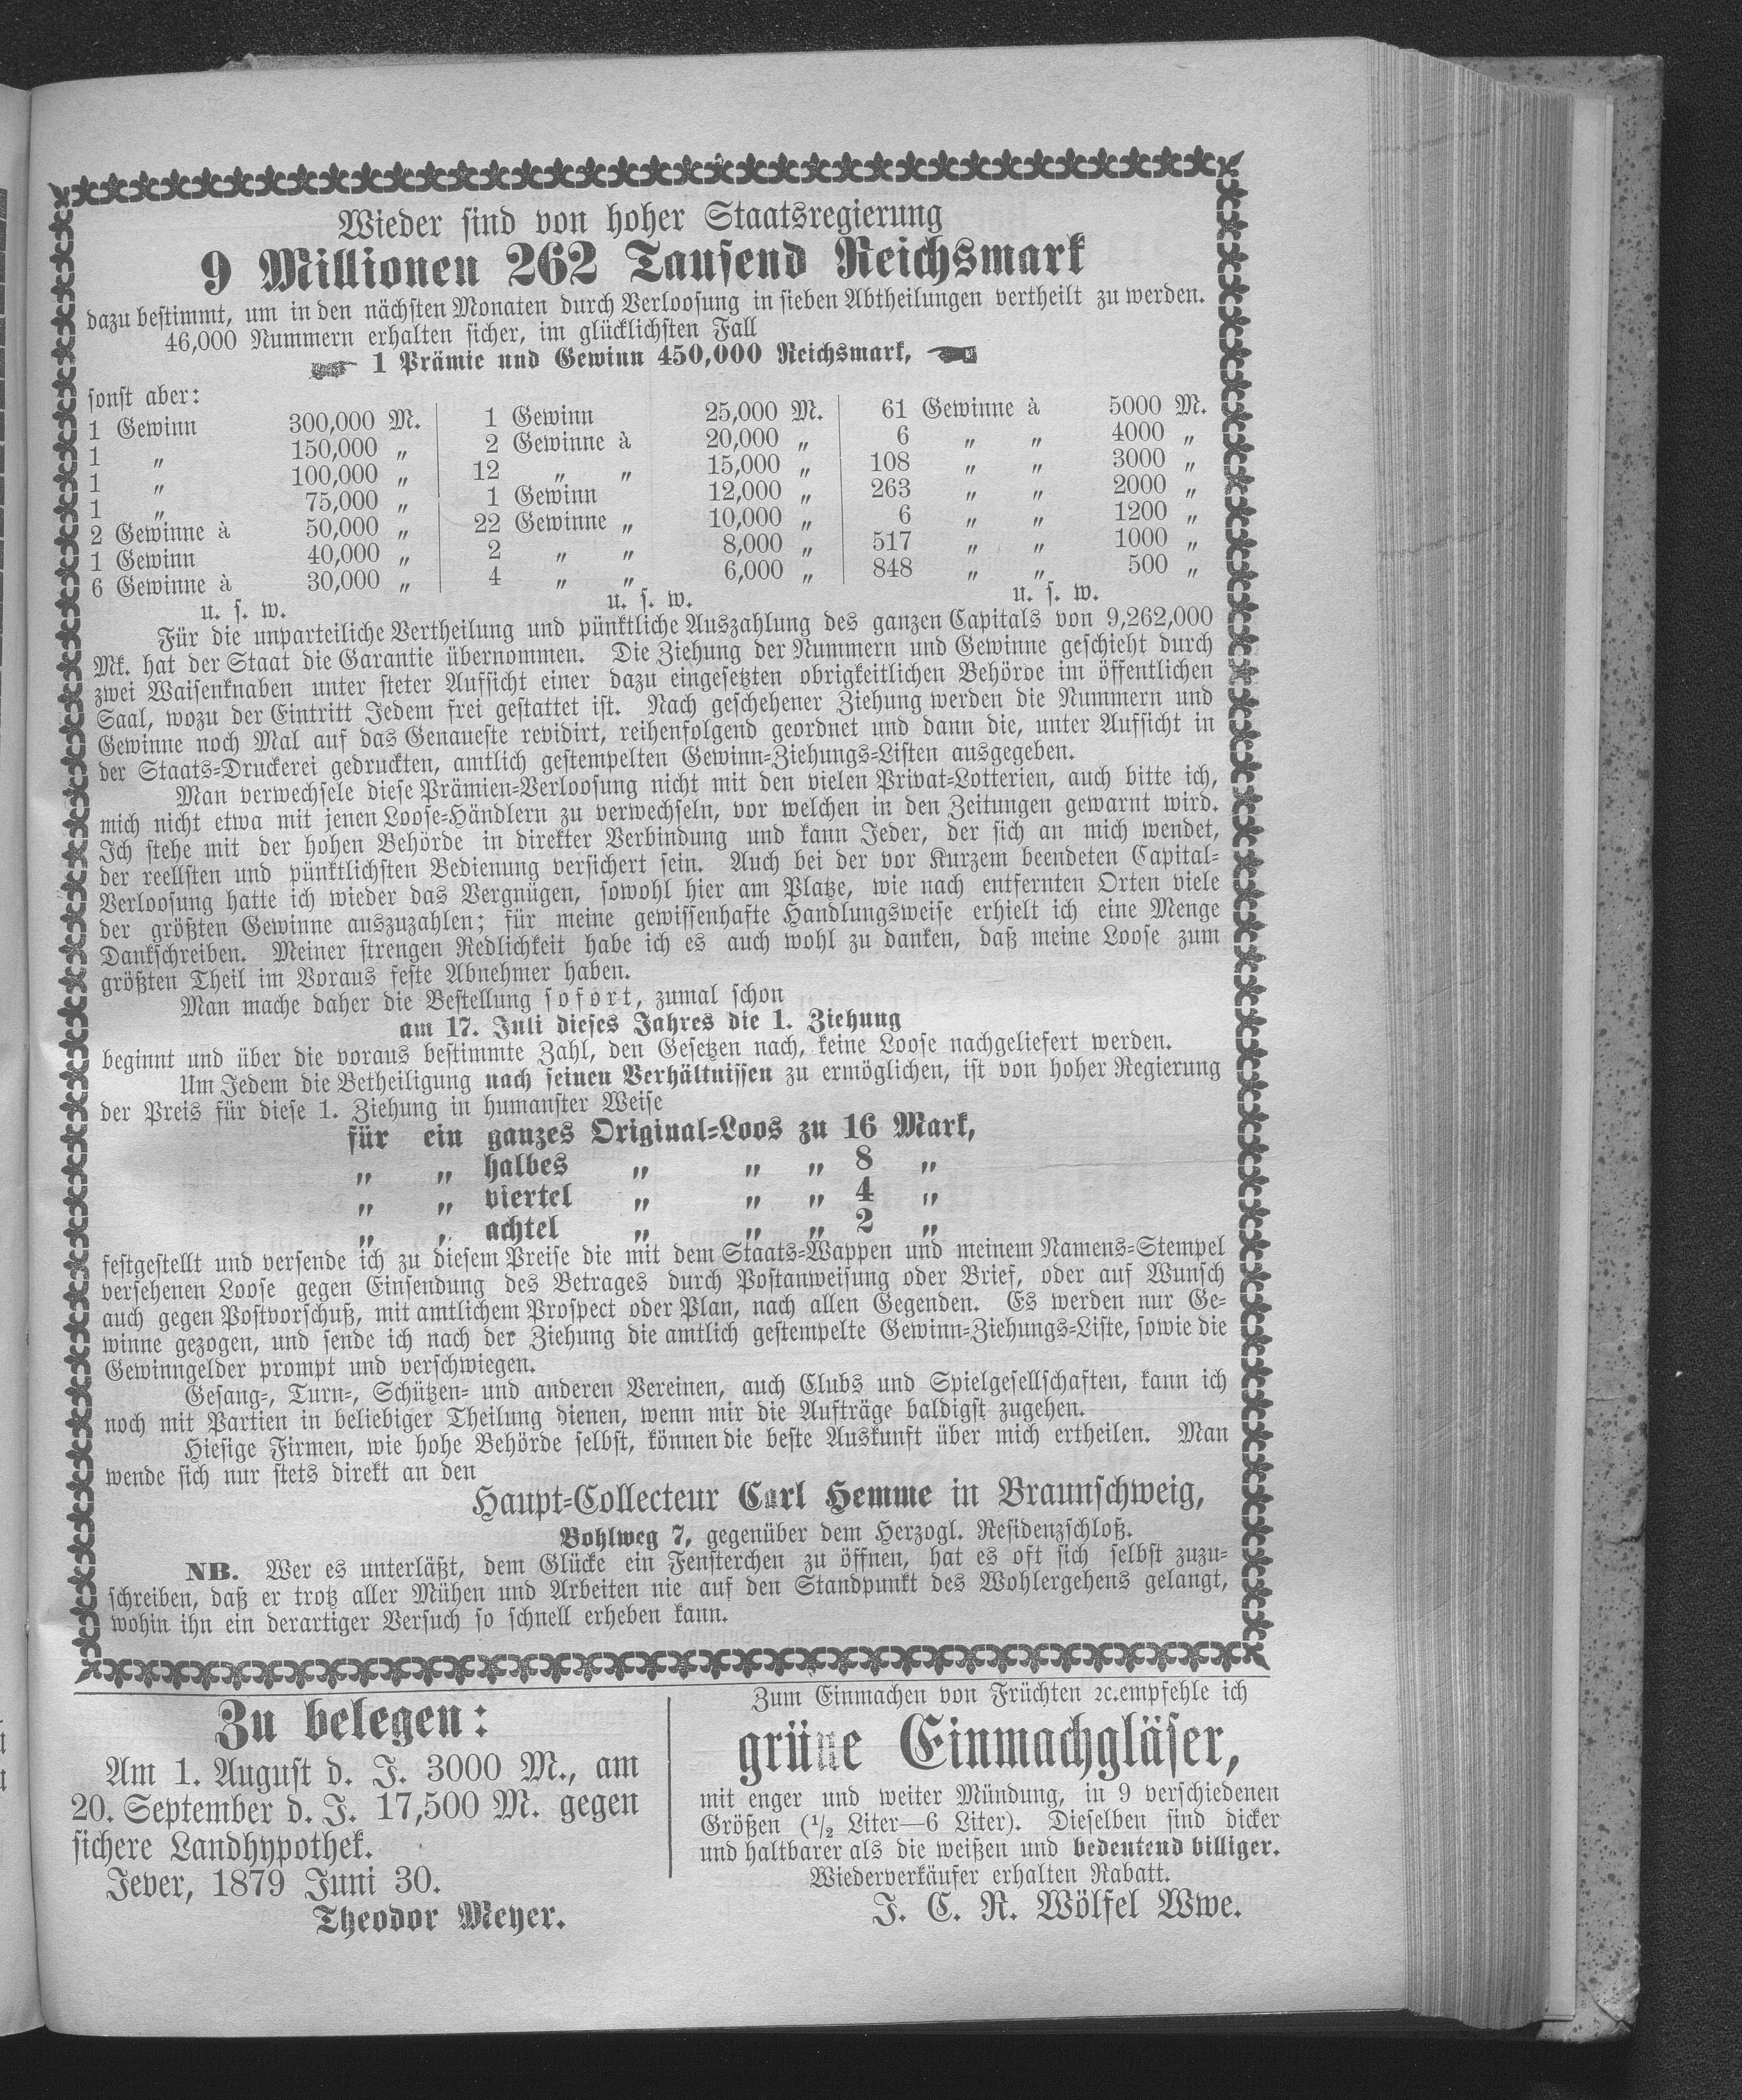 Wieder sind von hoher Staatsregierung
9 Millionen 262 Tausend Reichsmark
dazu bestimmt, um in den nächsten Monaten durch Verloosung in sieben Abtheilungen vertheilt zu werden.
46,000 Nummern erhalten sicher, im glücklichsten Fall
1 Prämie und Gewinn 450,000 Reichsmark,
sonst aber:
1 Gewinn 300,000 M.
1 „ 150,000 „
1 „ 100,000 „
1 „ 75,000 „
2 Gewinne à 50,000 „
1 Gewinn 40,000 „
6 Gewinne à 30,000 „
u. s. w.
1 Gewinn 25,000 M.
2 Gewinne à 20,000 „
12 „ „ 15,000 „
1 Gewinn 12,000 „
22 Gewinne „ 10,000 „
2 „ „ 8,000 „
4 „ „ 6,000 „
u. s. w.
61 Gewinne à 5000 M.
6 „ „ 4000 „
108 „ „ 3000 „
263 „ „ 2000 „
6 „ „ 1200 „
517 „ „ 1000 „
848 „ „ 500 „
u. s. w.
Für die unparteiliche Vertheilung und pünktliche Auszahlung des ganzen Capitals von 9,262,000
Mk. hat der Staat die Garantie übernommen. Die Ziehung der Nummern und Gewinne geschieht durch
zwei Waisenknaben unter steter Aufsicht einer dazu eingesetzten obrigkeitlichen Behörde im öffentlichen
Saal, wozu der Eintritt Jedem frei gestattet ist. Nach geschehener Ziehung werden die Nummern und
Gewinne noch Mal auf das Genaueste revidirt, reihenfolgend geordnet und dann die, unter Aufsicht in
der Staats-Druckerei gedruckten, amtlich gestempelten Gewinn-Ziehungs-Listen ausgegeben.
Man verwechsele diese Prämien-Verloosung nicht mit den vielen Privat-Lotterien, auch bitte ich,
mich nicht etwa mit jenen Loose-Händlern zu verwechseln, vor welchen in den Zeitungen gewarnt wird.
Ich stehe mit der hohen Behörde in direkter Verbindung und kann Jeder, der sich an mich wendet,
der reellsten und pünktlichsten Bedienung versichert sein. Auch bei der vor Kurzem beendeten Capital-
Verloosung hatte ich wieder das Vergnügen, sowohl hier am Platze, wie nach entfernten Orten viele
der größten Gewinne auszuzahlen; für meine gewissenhafte Handlungsweise erhielt ich eine Menge
Dankschreiben. Meiner strengen Redlichkeit habe ich es auch wohl zu danken, daß meine Loose zum
größten Theil im Voraus feste Abnehmer haben.
Man mache daher die Bestellung sofort, zumal schon
am 17. Juli dieses Jahres die 1. Ziehung
beginnt und über die voraus bestimmte Zahl, den Gesetzen nach, keine Loose nachgeliefert werden.
Um Jedem die Betheiligung nach seinen Verhältnissen zu ermöglichen, ist von hoher Regierung
der Preis für diese 1. Ziehung in humanster Weise
für ein ganzes Original-Loos zu 16 Mark,
„ „ halbes „ „ „ 8 „
„ „ viertel „ „ „ 4 „
„ „ achtel „ „ „ 2 „
festgestellt und versende ich zu diesem Preise die mit dem Staats-Wappen und meinem Namens-Stempel
versehenen Loose gegen Einsendung des Betrages durch Postanweisung oder Brief, oder auf Wunsch
auch gegen Postvorschuß, mit amtlichem Prospect oder Plan, nach allen Gegenden. Es werden nur Ge-
winne gezogen, und sende ich nach der Ziehung die amtlich gestempelte Gewinn-Ziehungs-Liste, sowie die
Gewinngelder prompt und verschwiegen.
Gesang-, Turn-, Schützen- und anderen Vereinen, auch Clubs und Spielgesellschaften, kann ich
noch mit Partien in beliebiger Theilung dienen, wenn mir die Aufträge baldigst zugehen.
Hiesige Firmen, wie hohe Behörde selbst, können die beste Auskunft über mich ertheilen. Man
wende sich nur stets direkt an den
Haupt-Collecteur Carl Hemme in Braunschweig,
Bohlweg 7, gegenüber dem Herzogl. Residenzschloß.
NB. Wer es unterläßt, dem Glücke ein Fensterchen zu öffnen, hat es oft sich selbst zuzu-
schreiben, daß er trotz aller Mühen und Arbeiten nie auf den Standpunkt des Wohlergehens gelangt,
wohin ihn ein derartiger Versuch so schnell erheben kann.
Zu belegen:
Am 1. August d. J. 3000 M., am
20. September d. J. 17,500 M. gegen
sichere Landhypothek.
Jever, 1879 Juni 30.
Theodor Meyer.
Zum Einmachen von Früchten ꝛc. empfehle ich
grüne Einmachgläser,
mit enger und weiter Mündung, in 9 verschiedenen
Größen (1/2 Liter—6 Liter). Dieselben sind dicker
und haltbarer als die weißen und bedeutend billiger.
Wiederverkäufer erhalten Rabatt.
J. C. R. Wölfel Wwe.